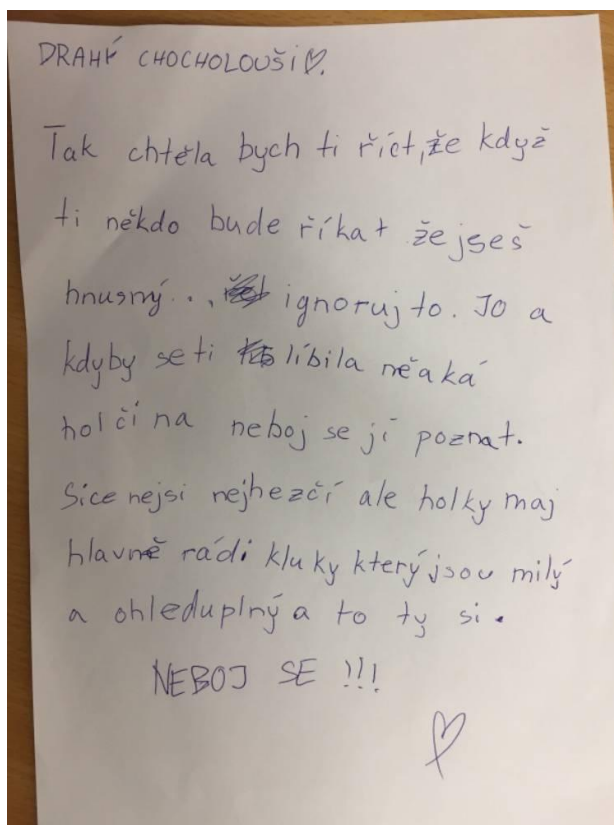 DRAHÝ CHOCHOLOUŠI♡.
Tak chtěla bych ti říct, že když
ti někdo bude říkat že jseš
hnusný... ignoruj to. JO a
kdyby se ti líbila něaká
holčina neboj se jí poznat.
Sice nejsi nejhezčí ale holky maj
hlavně rádi kluky který jsou milý
a ohleduplný a to ty si.
NEBOJ SE !!!
♡